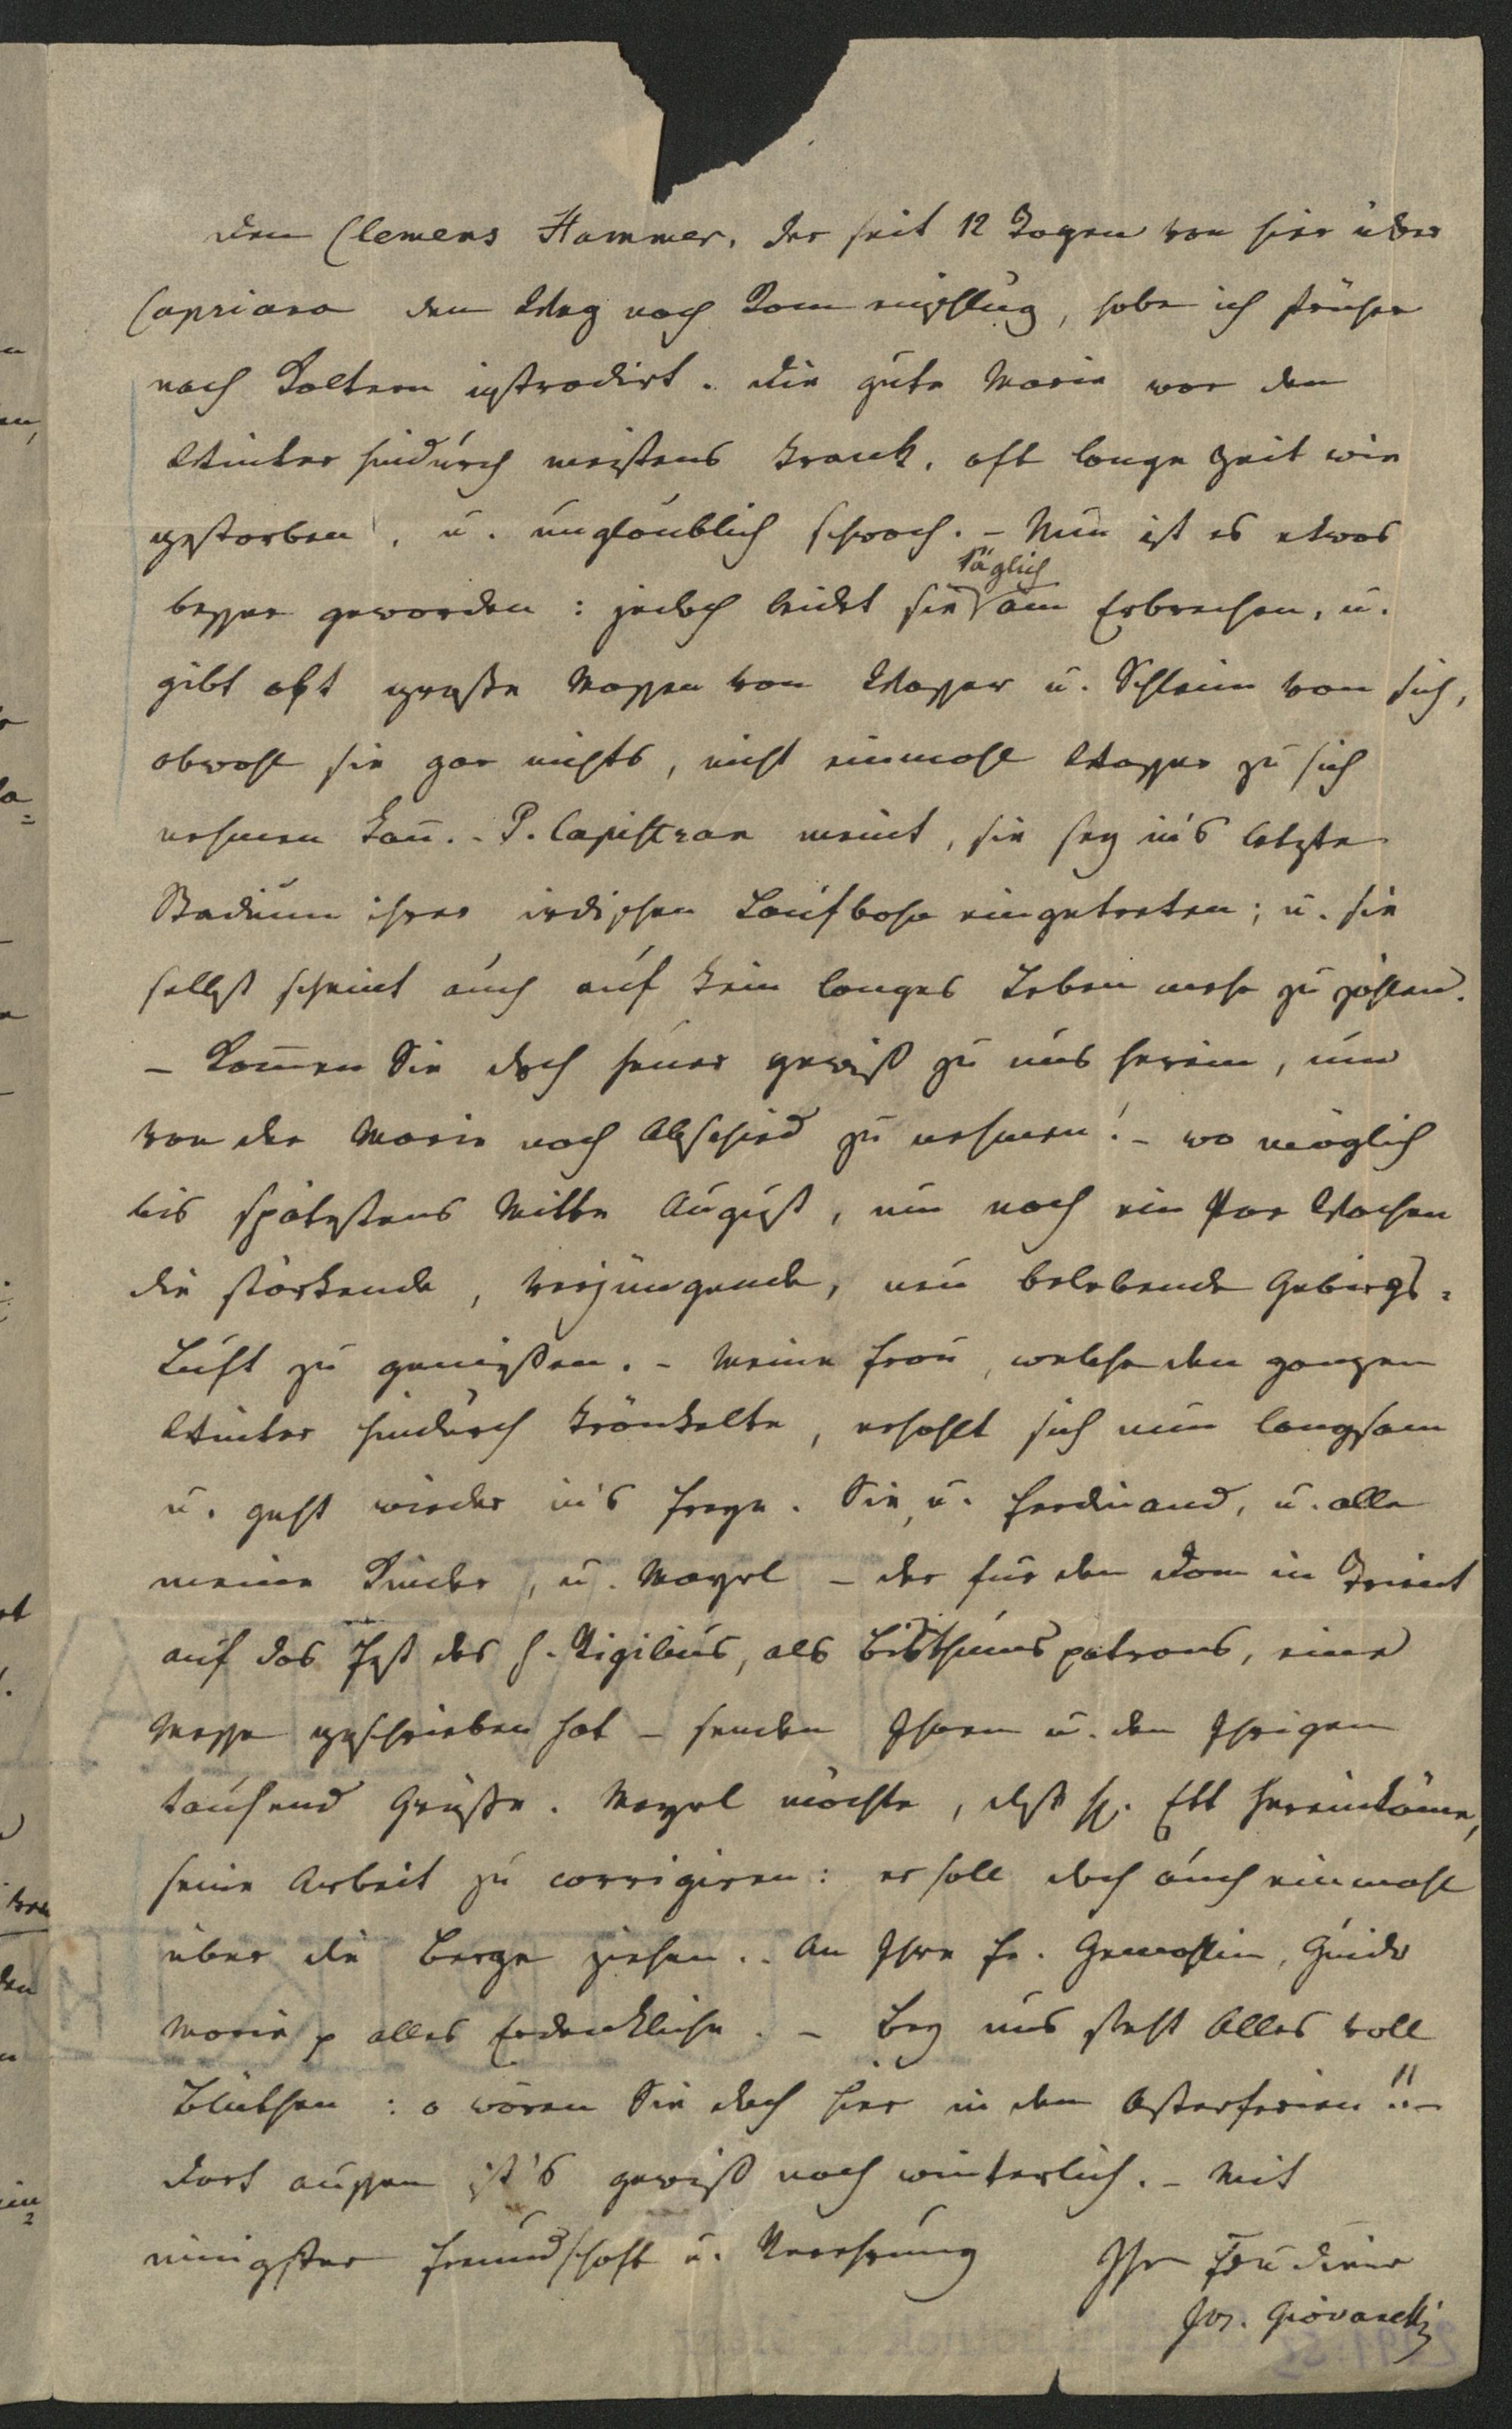 Den Clemens Hammer, der seit 12 Tagen von hier über
Capriana den Weg nach Rom einschlug, habe ich früher
nach Kaltern instradirt. Die gute Marie war den
Winter hindurch meistens krank, oft lange Zeit wie
gestorben, u. unglaublich schwach. – Nun ist es etwas
besser geworden: jedoch leidet sie täglich am Erbrechen, u.
gibt oft große Massen von Wasser u. Schleim von sich,
obwohl sie gar nichts, nicht einmahl Wasser zu sich
nehmen kan̄. – P. Capistran meint, sie sey in's letzte
Stadium ihrer irdischen Laufbahn eingetreten; u. sie
selbst scheint auch auf kein langes Leben mehr zu zählen.
– Kom̄en Sie doch heuer gewiß zu uns herein, um
von der Marie noch Abschied zu nehmen! – wo möglich
bis spätestens Mitte August, um noch ein Par Wochen
die stärkende, verjüngende, neu belebende Gebirgs=
Luft zu genießen. – Meine Frau, welche den ganzen
Winter hindurch kränkelte, erhohlt sich nun langsam
u. geht wieder in's Freye. Sie, u. Ferdinand, u. alle
meine Kinder, u. Mayrl – der für den Dom in Trient
auf das Fest des h. Vigilius, als Bisthumspatrons, eine
Messe geschrieben hat – senden Ihnen u. den Ihrigen
tausend Grüße. Mayrl möchte, daß H. Ett hereinkäme,
seine Arbeit zu corrigiren: er soll doch auch einmahl
über die Berge ziehen. – An Ihre Fr. Gemahlin, Guido
Marie p alles Erdenkliche. – Bey uns steht Alles voll
Blüthen: o wären Sie doch hier in den Osterferien!! –
dort aussen ist's gewiß noch winterlich. – Mit
innigster Freundschaft u. Verehrung Ihr
Jos. Giovanelli